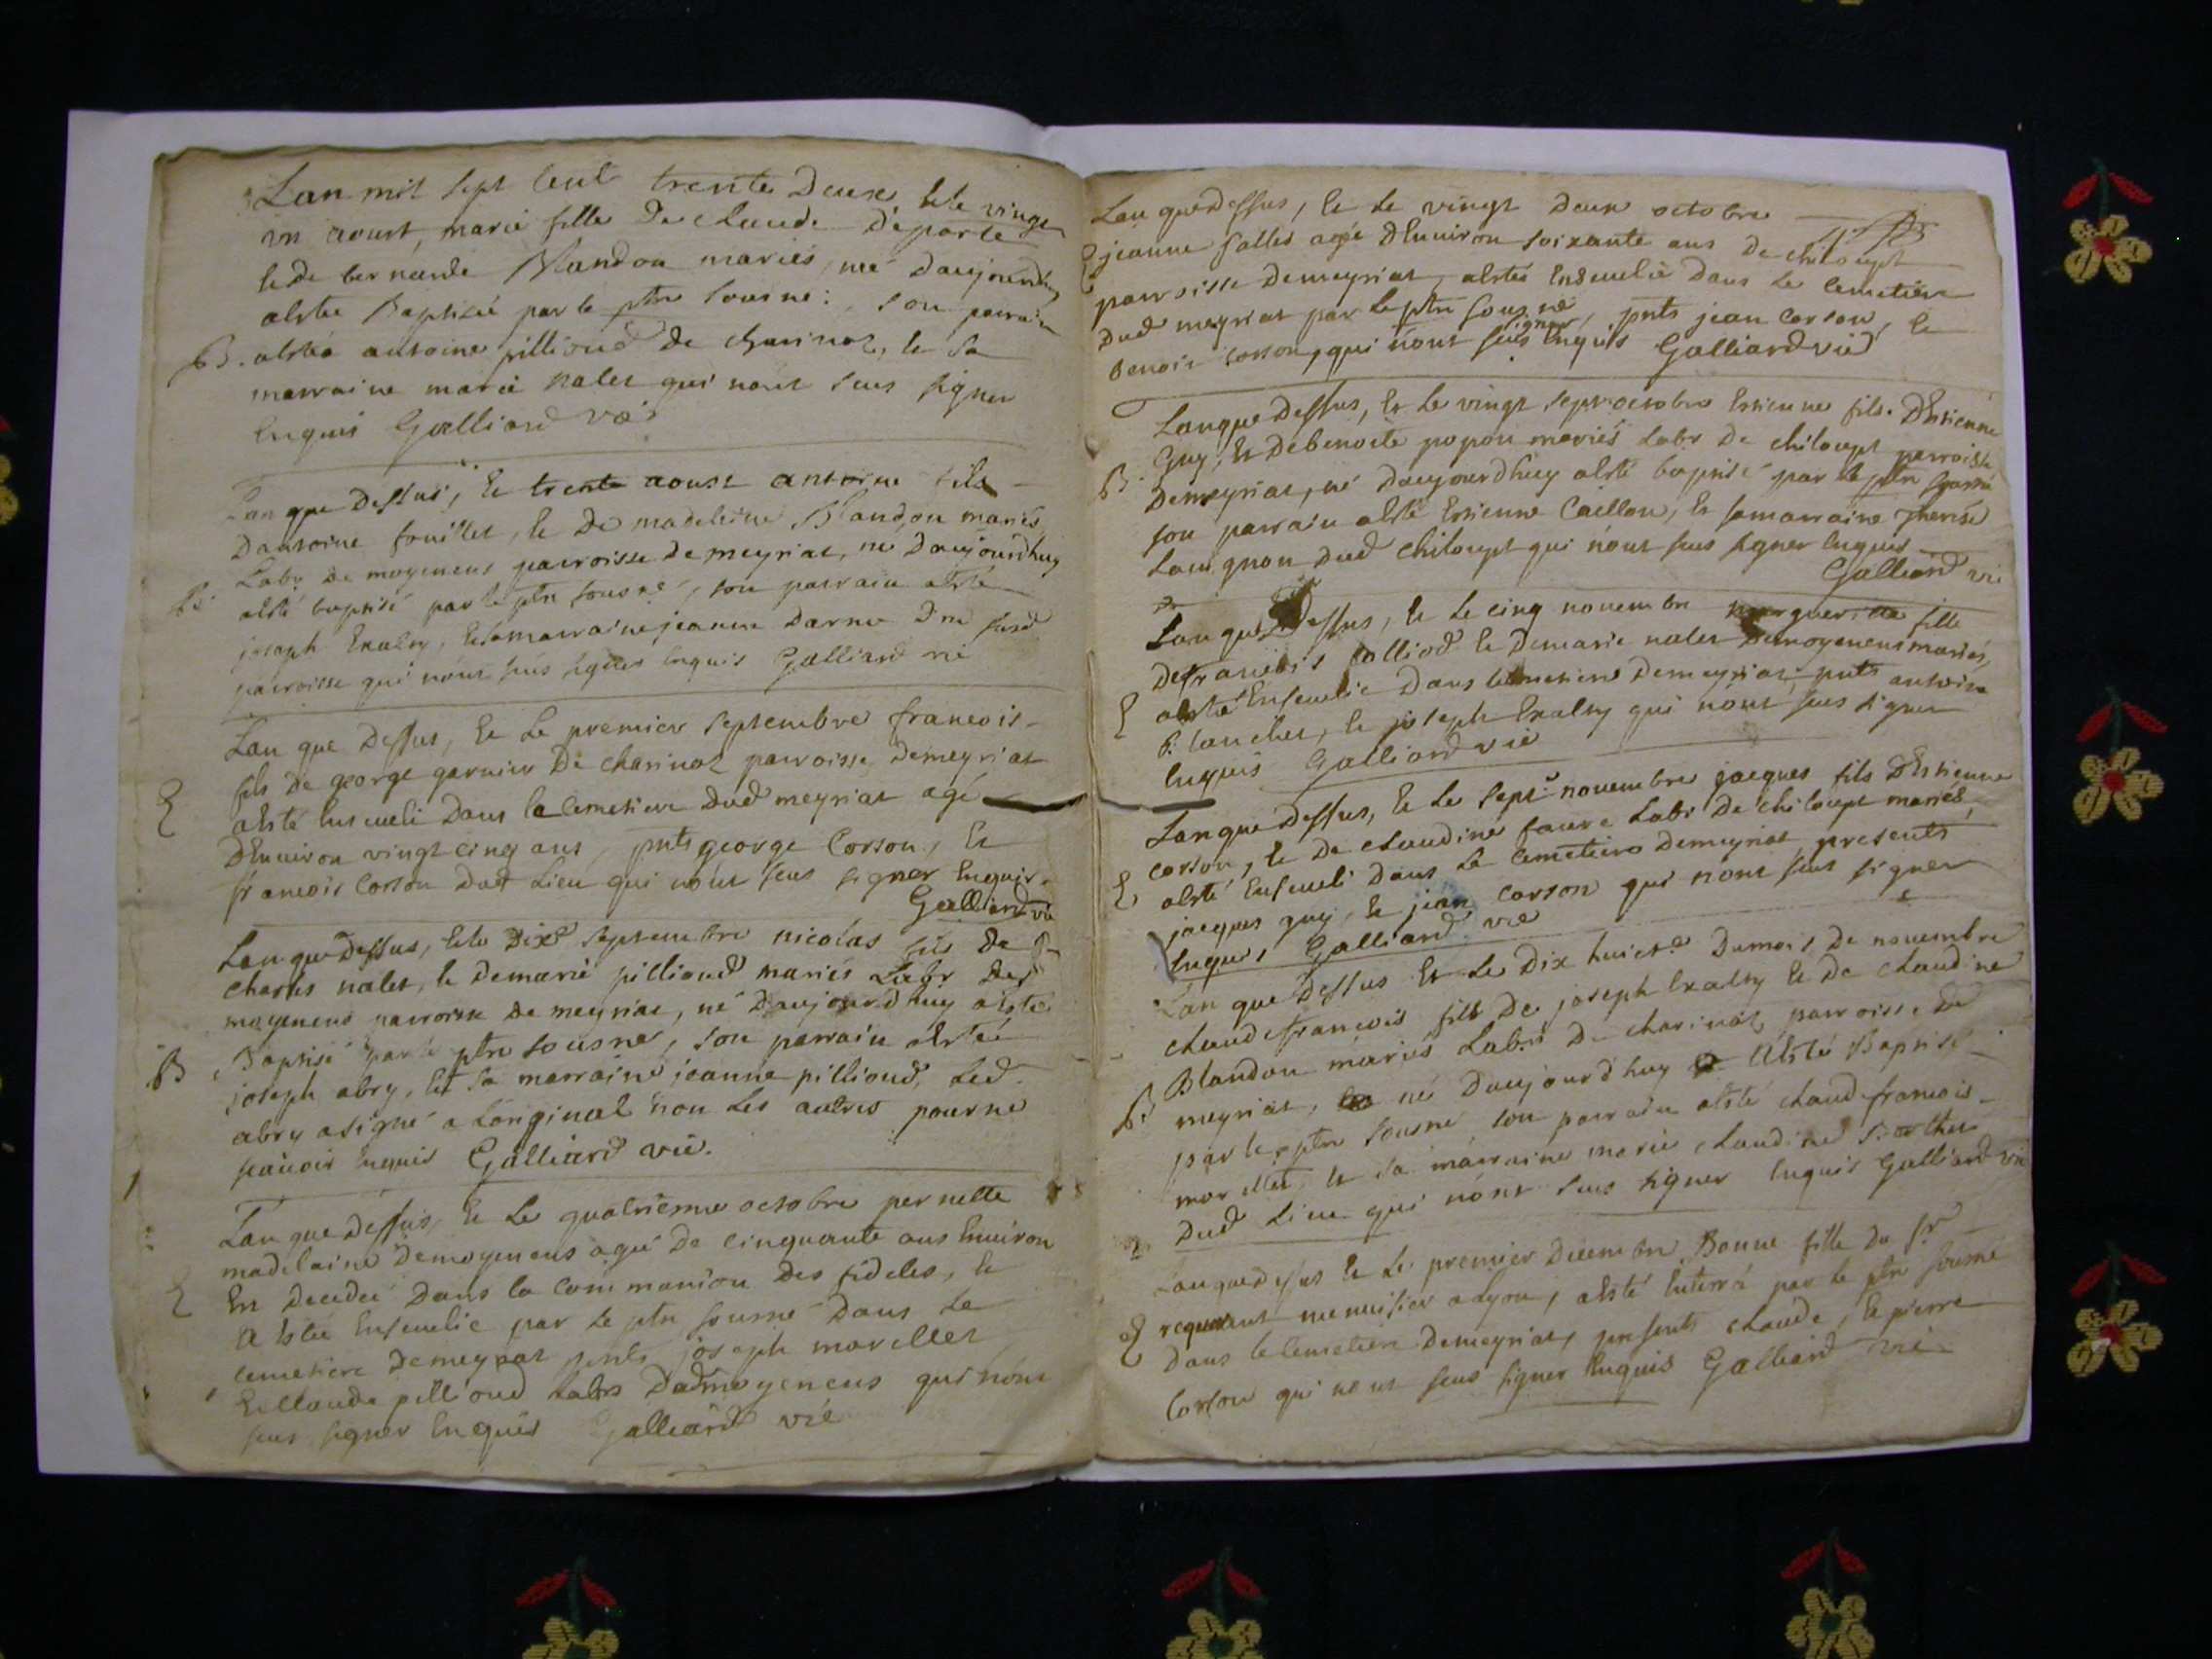 Lan mil sept cent trente deux, & le vingt
un aoust, marie fille de claude deporte
& de bernarde Blandon mariés, née daujourdhuy
aesté Baptisée par le ptre sousné: son parrain
B. aesté antoine pillioud de charinaz, & sa
marraine marie nalet qui nont sceus signer
enquis Galliard vic
Lan que dessus, & trente aoust antoine fils
dantoine fouillet, & de madeleine Blandon mariés
Labr de moyenens parroisse de meyriat, né daujourdhuy
B. aesté baptisé par le ptre sousné, son parrain aesté
joseph , & sa marraine jeanne darme
parroisse qui nont sceus signer enquis Galliard vic
Lan que dessus, & le premier septembre francois
fils de george garnier de charinaz parroisse de meyriat
E aesté enseueli dans le cemetiere dud meyriat agé
denuiron vingt cinq ans, pnts george Corson, &
francois Corson dud lieu qui nont sceus signer enquis.
Galliard vic
Lan que dessus, & le dixe septembre nicolas fils de
charles nalet, & de marie pillioud mariés Labr de
moyenens parroisse de meyriat, né daujourdhuy aesté
B Baptisé par le ptre sousné, son parrain aesté
joseph abry, & sa marraine jeanne pillioud, Led.
abry a signé a Loriginal non les autres pour ne
scauoir enquis Galliard vic.
Lan que dessus, & le quatriesme octobre pernette
madelaine de moyenens agée de cinquante ans enuiron
E decedée dans la communion des fideles, &
a estée enseuelie par le ptre sousné dans le
cemetiere de meyriat pnts joseph morellet
& claude pillioud Labrs dud moyenens qui nont
sceus signer enquis Galliard vic
Lan que dessus, & le vingt deux octobre
E jeanne salles agée denuiron soixante ans de chiloupt
parroisse de meyriat, aestée enseuelie dans le cemetiere
dud meyriat par le ptre sousné, pnts jean corson, &
benoit corson, qui nont sceus signer enquis Galliard vic
Lan que dessus, & le vingt sept octobre Estienne fils destienne
Guy, & de benoite popon mariés Labr de chiloupt parroisse
B. de meyriat, né daujourdhuy aesté baptisé par le ptre sousné
son parrain aesté Estienne Caillon, & sa marraine Therese
dud chiloupt qui nont sceus signer enquis
Galliard vic
Lan que dessus, & le cinq novembre marguerite fille
de francois pilliod & de marie nalet de moyenens mariés,
E aesté enseuelie dans le cemetiere de meyriat, pnts antoine
blanchet, & joseph qui nont sceus signer
enquis Galliard vic
Lan que dessus, & le sept novembre jacques fils destienne
corson, & de claudine faure Labr de chiloupt mariés,
E aesté enseueli dans le cemetiere de meyriat, presents
jacques guy, & jean corson qui nont sceus signer
enquis Galliard vic
Lan que dessus & le dix huict.e du mois de novembre
claude francois fils de joseph & de claudine
Blandon mariés Labrs de charinaz parroisse de
B. meyriat, né daujourdhuy aesté Baptisé
par le ptre sousné son parrain aesté claude francois
morellet, & sa marraine marie claudine
dud lieu qui nont sceus signer enquis Galliard vic
Lan que dessus & le premier decembre Bonne fille du sr
E menuisier a Lyon, aesté enterrá par le ptre sousné
dans le cemetiere de meyriat, presents claude, & pierre
Corson qui nont sceus signer enquis Galliard vic